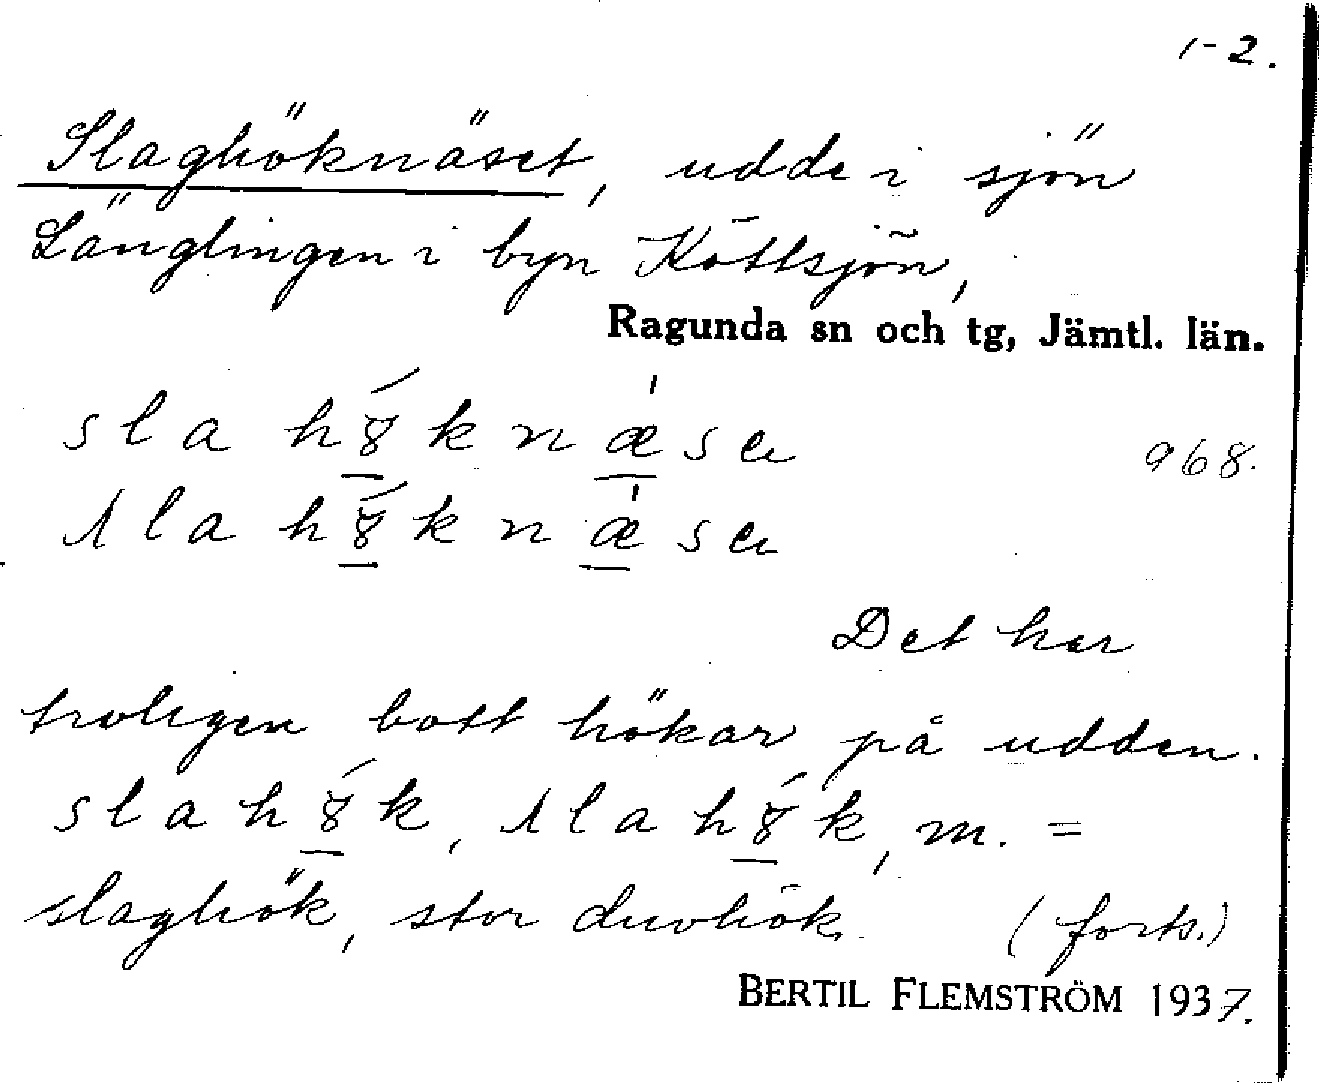 1-2.
Slaghöknäset, udde i sjön
Länglingen i byn Köttsjön,
Ragunda sn och tg, Jämtl. län.
slahȣ́knæ̍sɐ
968.
ʌlahȣ́knæ̍sɐ
Det har
troligen bott hökar på udden.
slahȣ́k, ʌlahȣ́k, m. =
slaghök, stor duvhök. (forts.)
BERTIL FLEMSTRÖM 1937.